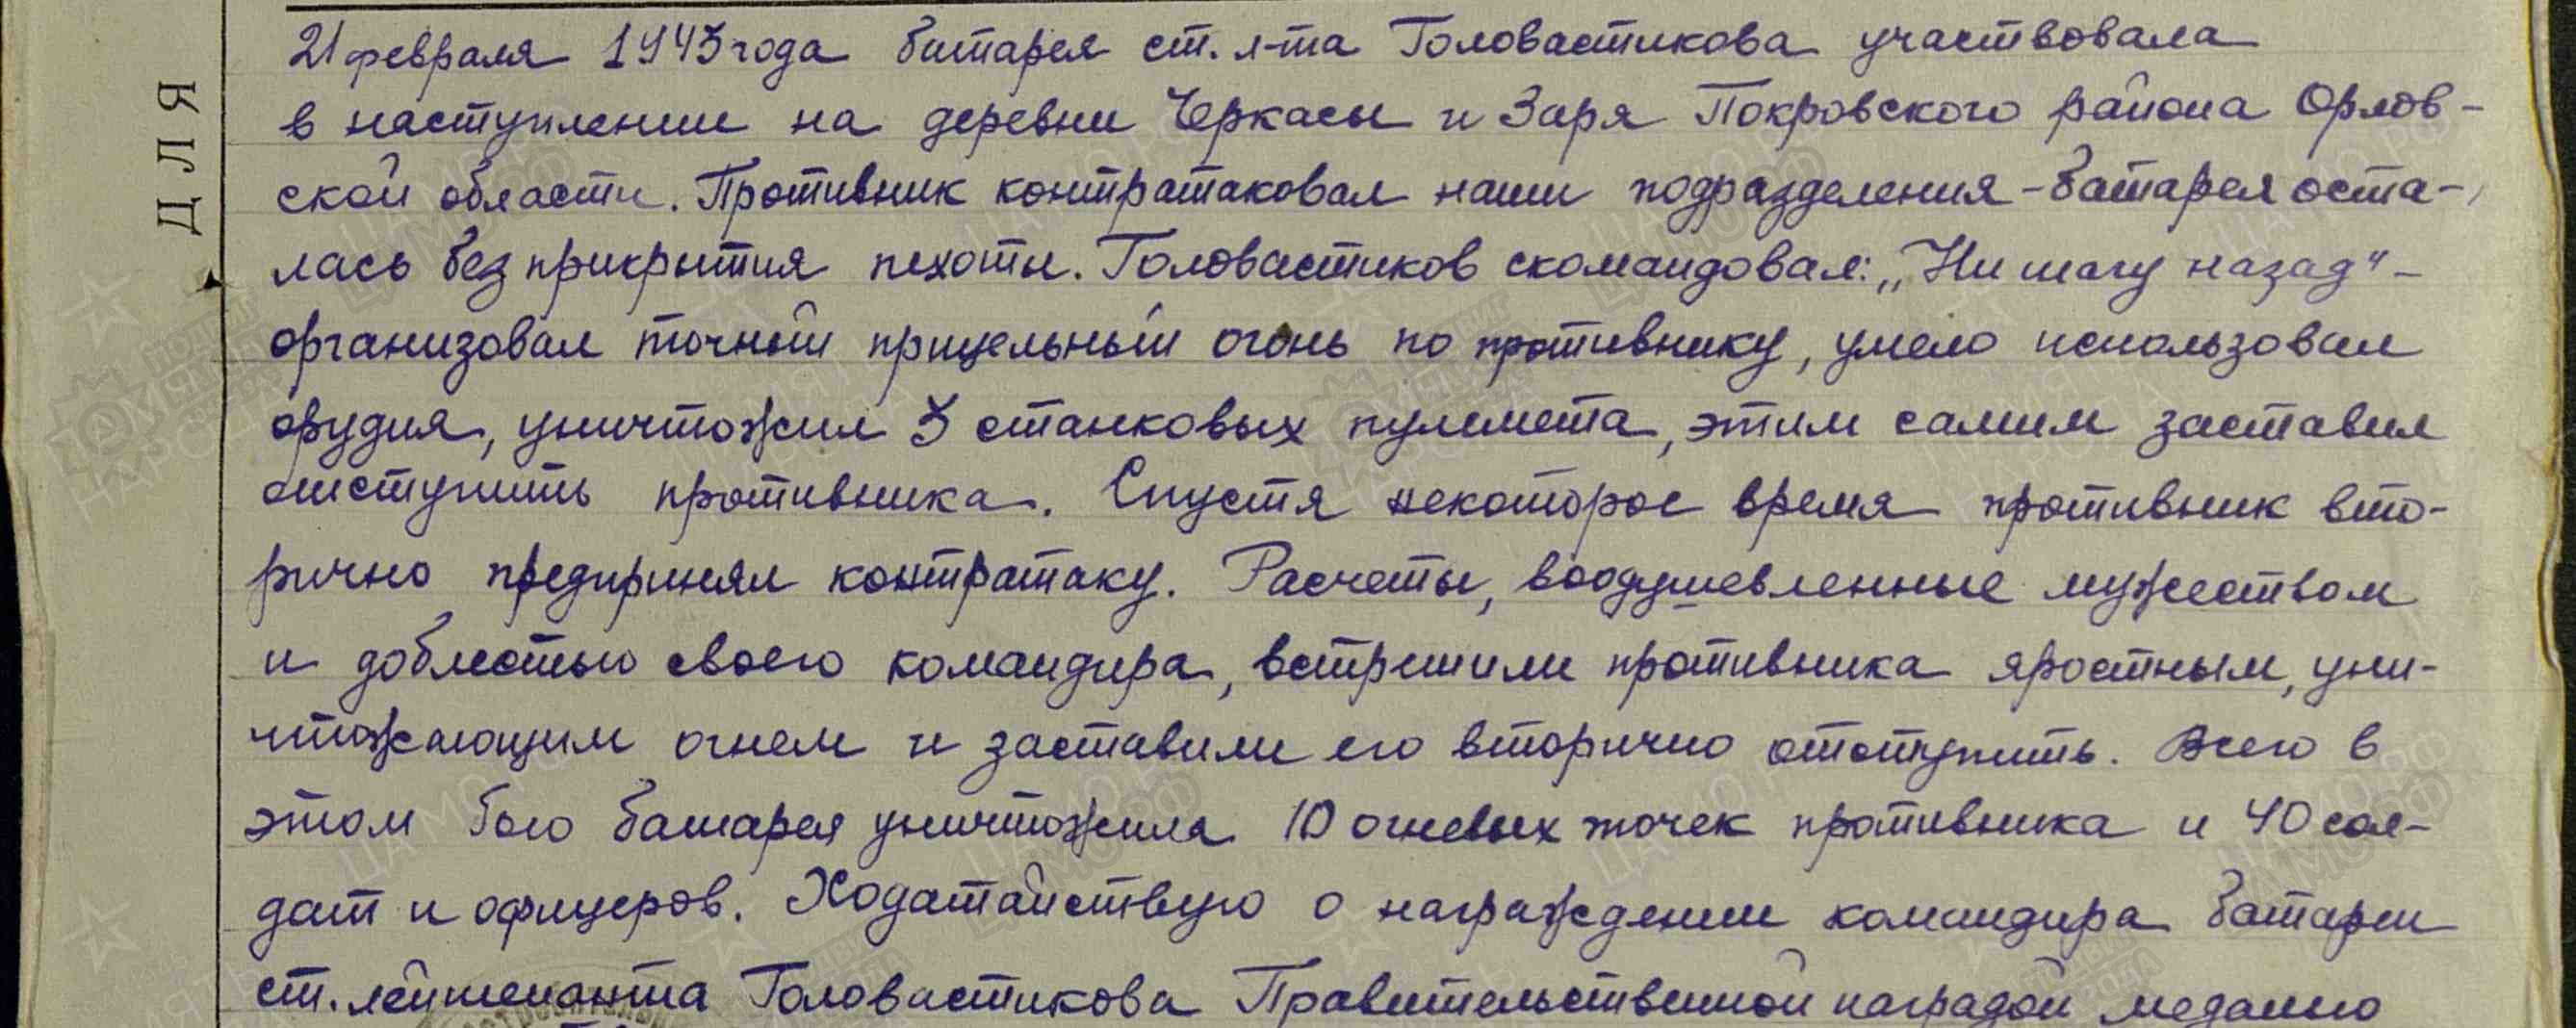 ДЛЯ
21 февраля 1943 года батарея ст. л-та Головастикова участвовала
в наступлении на деревни Черкасы и Заря Покровского района Орлов-
ской области. Противник контратаковал наши подразделения - батарея оста-
лась без прикрытия пехоты. Головастиков скомандовал: „Ни шагу назад" -
организовал точный прицельный огонь по противнику, умело использовал
орудия, уничтожил 3 станковых пулемета, этим самим заставил
отступить противника. Спустя некоторое время противник вто-
рично предпринял контратаку. Расчеты, воодушевленные мужеством
и доблестью своего командира, встретили противника яростным, уни-
чтожающим огнем и заставили его вторично отступить. Всего в
этом бою батарея уничтожила 10 огневых точек противника и 40 сол-
дат и офицеров. Ходатайствую о награждении командира батареи
ст. лейтенанта Головастикова Правительственной наградой медалью